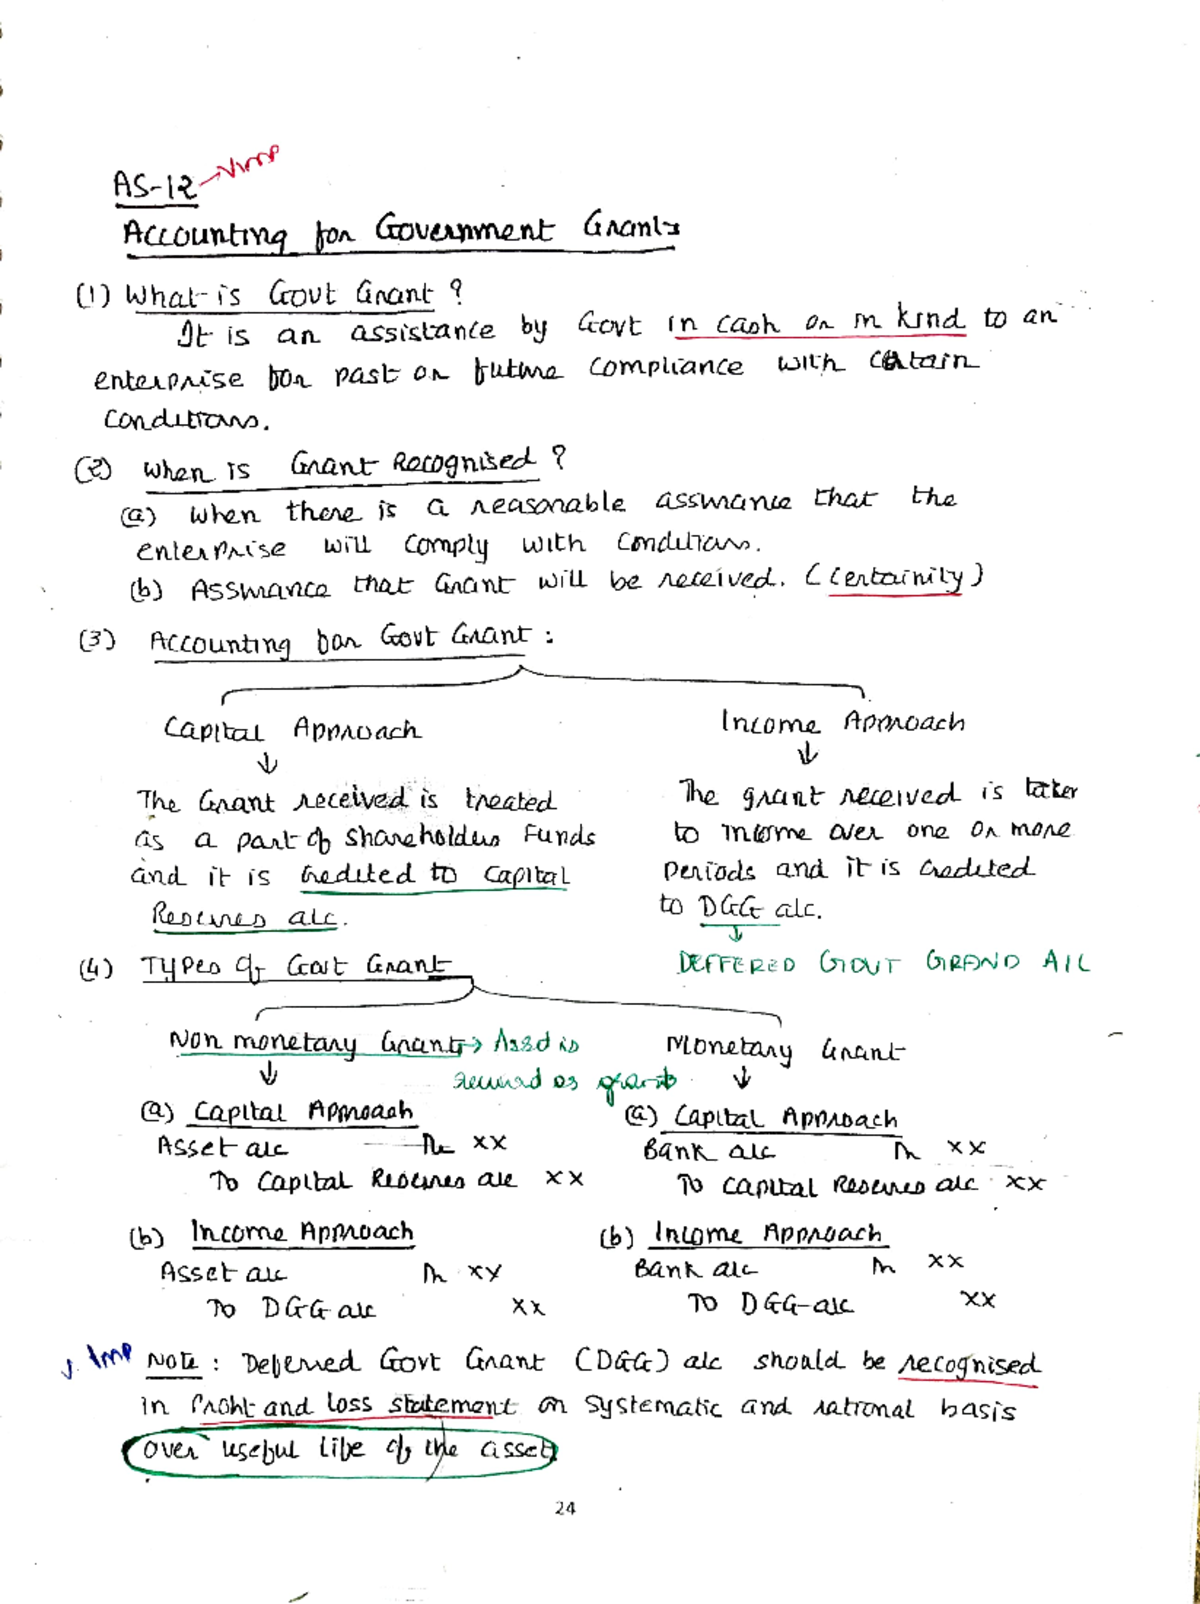 AS-12 → Vimp
Accounting for Government Grants
(1) What is Govt Grant ?
It is an assistance by Govt in cash or in kind to an
enterprise for past or future compliance with certain
conditions.
(2) When is Grant Recognised ?
(a) When there is a reasonable assurance that the
enterprise will comply with conditions.
(b) Assurance that Grant will be received. (Certainity)
(3) Accounting for Govt Grant :
Capital Approach
↓
The Grant received is treated
as a part of Shareholders Funds
and it is credited to Capital
Reserves a/c.
Income Approach
↓
The grant received is taken
to income over one or more
periods and it is credited
to DGG a/c.
↓
DEFFERED GOVT GRAND A/C
(4) Types of Govt Grant
Non monetary Grants → Asset is
received as grant
↓
(a) Capital Approach
Asset a/c Dr xx
To Capital Reserves a/c xx
(b) Income Approach
Asset a/c Dr xx
To DGG a/c xx
Monetary Grant
↓
(a) Capital Approach
Bank a/c Dr xx
To Capital Reserves a/c xx
(b) Income Approach
Bank a/c Dr xx
To DGG a/c xx
Imp Note : Deferred Govt Grant (DGG) a/c should be recognised
in Profit and loss statement on systematic and rational basis
over useful life of the asset.
24